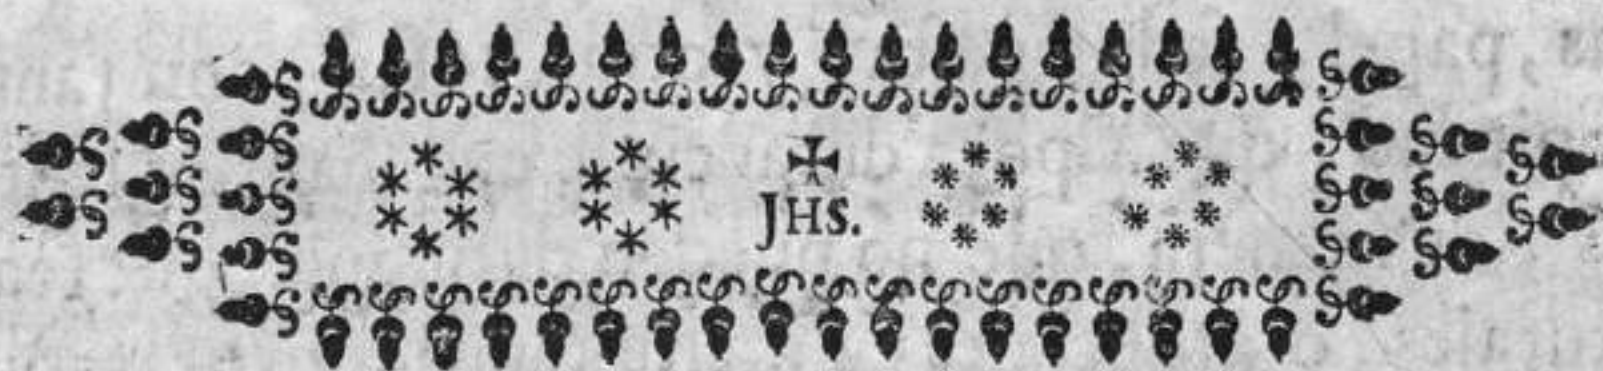 ✠
JHS.